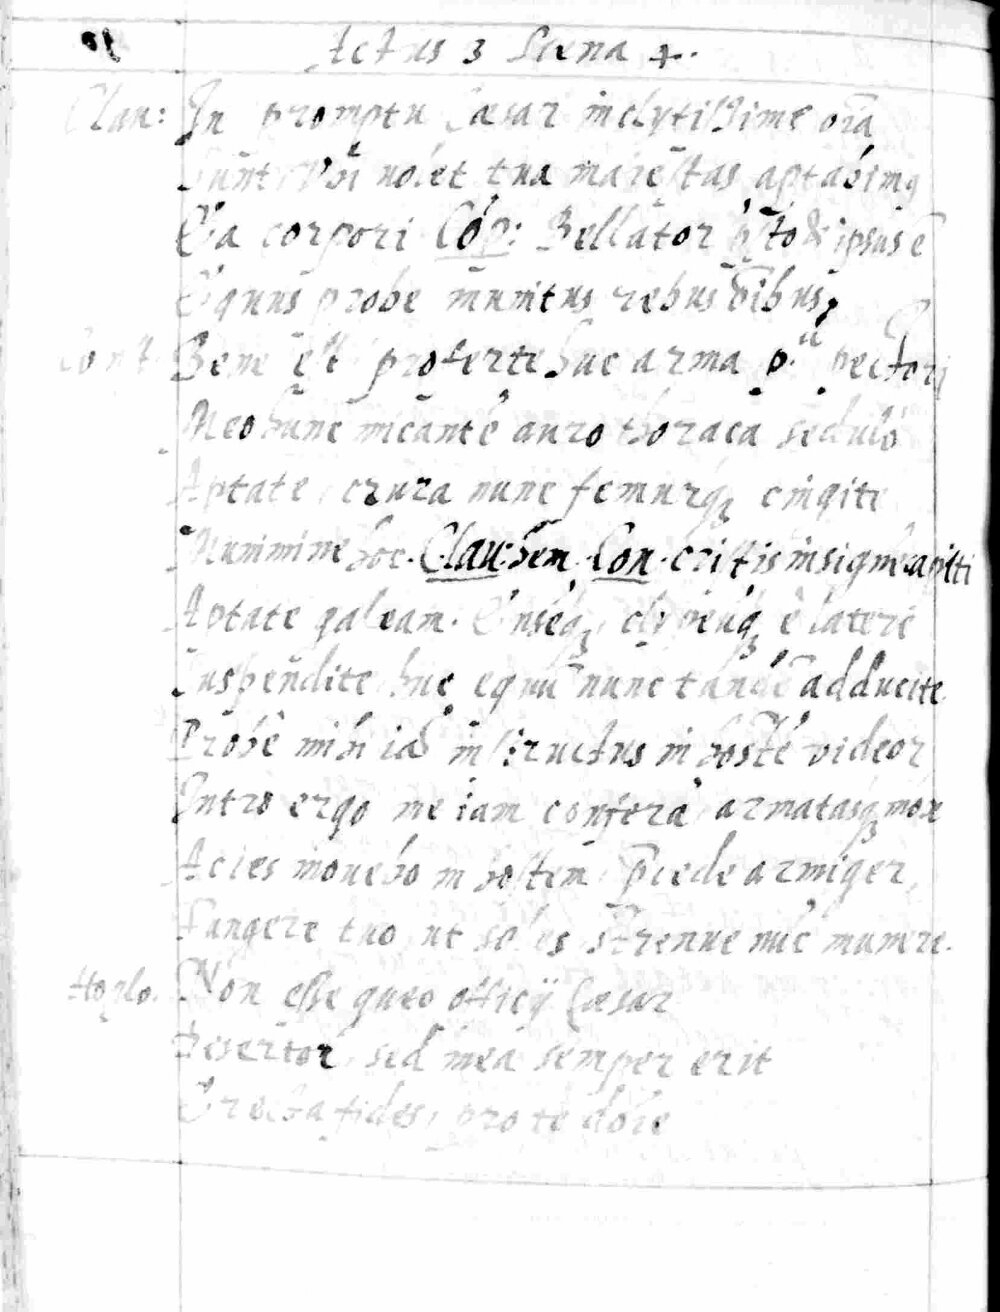 Actus 3 Scena 4.
Clau: In promptu Cæsar inclytissime oīa
Sunt, vbi uolet tua maiestas aptabimus
Ea corpori Cōp: Bellator ipsus ē
Equus probe munitus rebus oībus,
Const. Bene est proferte huc arma p. pectori
Meo hunc micantē auro thoraca sedulò
Aptate, crura nunc femurq; cingite
Munimine hoc. Clau: hem Con. cristis insignē capiti
Aptate galeam. Ensēq; clypeūq; è latere
Suspendite huc equū nunc tandē adducite
Probè mihi iā instructus in hostē videor
Intro ergo me iam conferā armatasq; mox
Acies mouebo in hostem p̄cede armiger,
Fungere tuo ut soles strenue nūc munere.
Hoplo. Non esse queo officij Cæsar
Desertor, sed mea semper erit
Erecta fides, pro te dobre